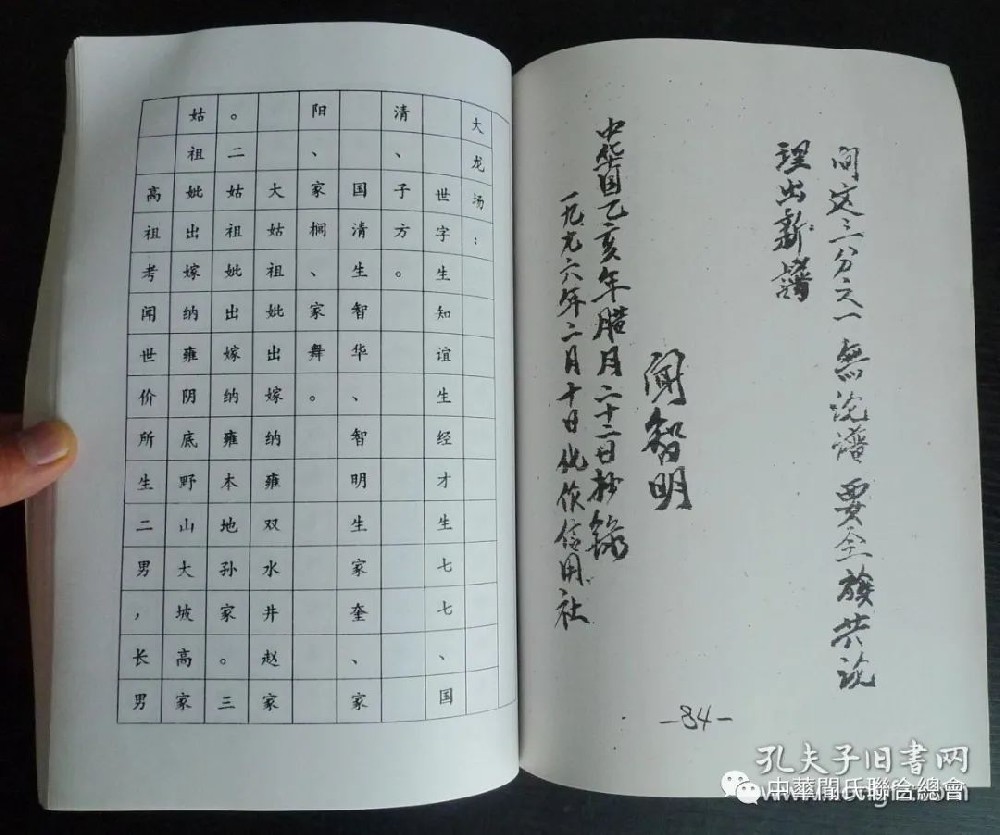 三分之一無譜要族共
理出新譜
闻智明
中华国乙亥年腊月二十二日抄錄
一九九六年二月十日化作信用社
-84-
大龙汤：
世字生知谊生经才生七七、国
清、子方。
国清生智华、智明生家奎、家
阳、家㭎、家舞。
大姑祖妣出嫁纳雍双水井赵家
。二姑祖妣出嫁纳雍本地孙家。三
姑祖妣出嫁纳雍阴底野山大坡高家
高祖考闻世价所生二男，长男
孔夫子旧书网
中華聞氏聯合總會